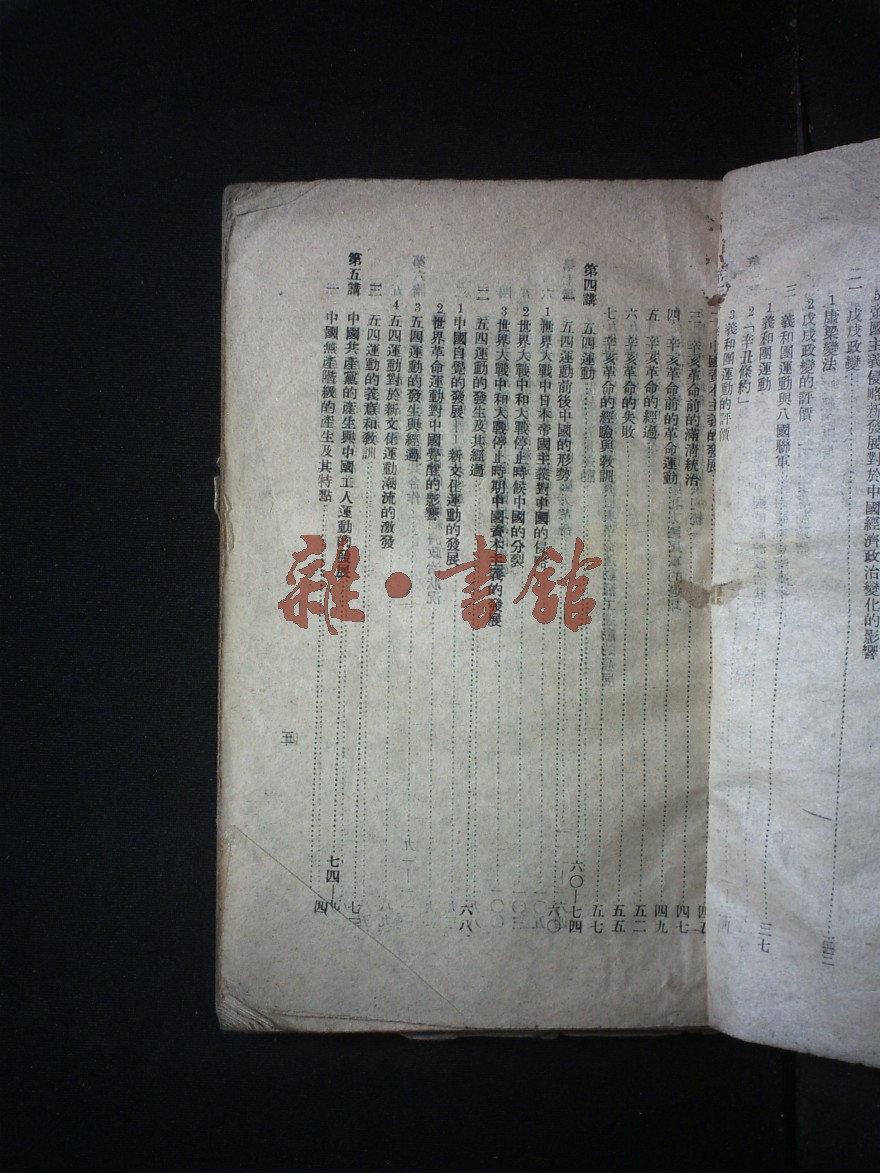 帝國主義侵略新發展對於中國經濟政治變化的影響
二 戊戌政變
1 康梁變法
2 戊戌政變的評價
三 義和團運動與八國聯軍 三七
1 義和團運動
2 「辛丑條約」
3 義和團運動的評價
中國資本主義的發展
三 辛亥革命前的滿清統治 四七
四 辛亥革命前的革命運動 四九
五 辛亥革命的經過 五二
六 辛亥革命的失敗 五五
七 辛亥革命的經驗與教訓 五七
第四講 五四運動 六〇—七四
一 五四運動前後中國的形勢 六〇
1 世界大戰中日本帝國主義對中國的侵略
2 世界大戰中和大戰停止時候中國的分裂
3 世界大戰中和大戰停止時期中國資本主義的發展
二 五四運動的發生及其經過 六八
1 中國自覺的發展——新文化運動的發展
2 世界革命運動對中國覺醒的影響
3 五四運動的發生與經過
4 五四運動對於新文化運動潮流的激發
三 五四運動的意義和教訓
第五講 中國共產黨的產生與中國工人運動的發展 七四—
一 中國無產階級的產生及其特點
雜·書館